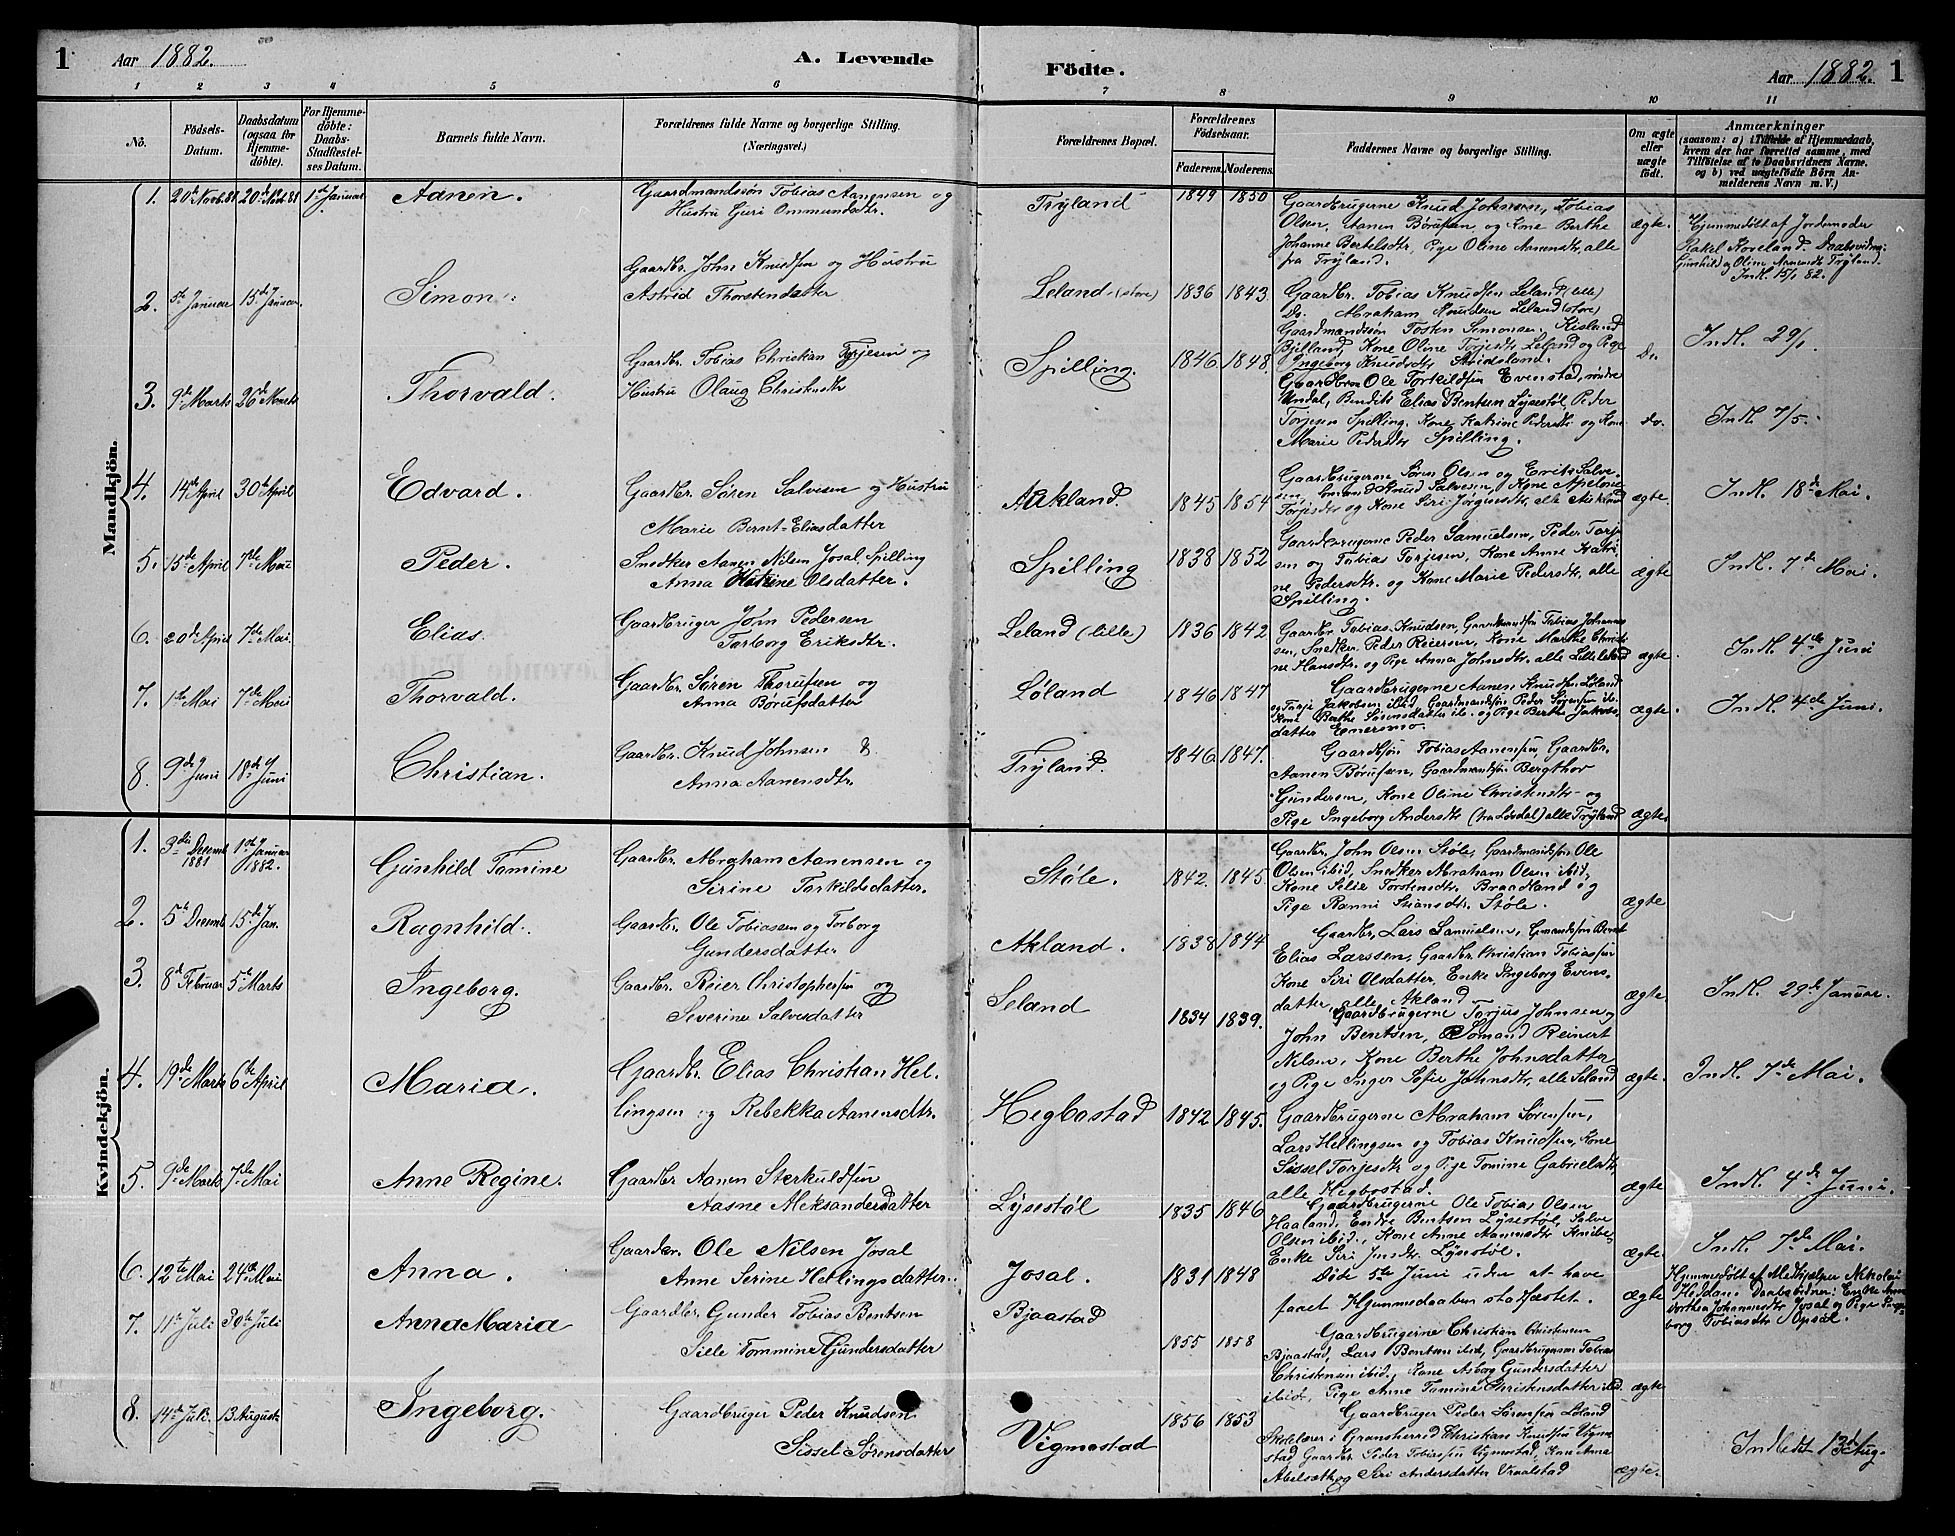 1
Aar 1882.
A. Levende
Födte.
Aar 1882.
1
1 2 3 4 5 6 7 8 9 10 11
No.
Födsels-Datum.
Daabsdatum (ogsaa for Hjemme-döbte).
For Hjemme-döbte: Daabs-Stadfæstel-ses Datum.
Barnets fulde Navn.
Forældrenes fulde Navne og borgerlige Stilling.
(Næringsvei.)
Forældrenes Bopæl.
Forældrenes Födselsaar.
Faderens. Moderens.
Faddernes Navne og borgerlige Stilling.
Om ægte eller uægte födt.
Anmærkninger
(saasom: a) i Tilfælde af Hjemmedaab,
hvem der har forrettet samme, med
Tilföielse af to Daabsvidners Navne.
og b) ved uægtefödte Börn An-
melderens Navn m. V.)
Mandkjön.
1. 20de Novb. 81 20de Novb 81 1ste Januar Aanen.
Gaardmandssön Tobias Aanensen og
Hustru Guri Ommundsdtr.
Tryland 1849 1850
Gaardbrugerne Knud Johnsen, Tobias
Olsen, Aanen Börufsen, og Kone Berthe
Johanne Bertelsdtr, Pige Oline Aanensdtr, alle
fra Tryland.
ægte.
Hjemmedöbt af Jordemoder
Rakel Koveland. Daabsvidne:
Gunhild og Oline Aanensdtr Tryland.
Indl. 15/1 82.
2. 5te Januar 15de Januar Simon.
Gaardbr. John Knudsen og Hustru
Astrid Thorstendatter
Leland (store) 1836 1843
Gaardbr. Tobias Knudsen Leland (lille)
Do. Abraham Knudsen Leland (store)
Gaardmandssön Tosten Simonsen, Kisland
Bjelland, Kone Oline Torjesdtr Leland og Pige
Ingeborg Knudsdtr
Do
Indl. 29/1.
3. 9de Marts 26de Marts Thorvald.
Gaardbr. Tobias Christian Torjesen og
Hustru Olaug Christensdtr
Spilling. 1846. 1848
Gaardbrn Ole Torkildsen Evenstad, söndre
Undal, Bendit Elias Bentsen Lysestöl, Peder
Torjesen Spilling. Kone Katrine Pedersdtr og Kone
Marie Pedersdtr Spilling.
Do.
Indl. 7/5.
4. 14de April 30de April Edvard.
Gaardbr. Sören Salvesen og Hustru
Marie Bernt-Eliasdatter
Aikland. 1845 1854
Gaardbrugerne Sören Olsen og Erik Salve
sen, Knud Salvesen, Kone
Torjesdtr og Kone Siri Jörgensdtr, alle Aikland
ægte.
Indl. 18de Mai.
5. 15de April 7de Mai Peder.
Snedker Aanen Nilsen Josal, Spilling
Anna Katrine Olsdatter.
Spilling 1838 1852
Gaardbrugerne Peder Samuelsen, Peder Torje
sen og Tobias Torjesen, Kone Anne Katri
ne Pedersdtr. og Kone Marie Pedersdtr, alle
Spilling.
ægte
Indl. 7de Mai.
6. 20de April 7de Mai. Elias.
Gaardbruger Jörn Pedersen
Torborg Eriksdtr.
Leland (lille) 1836 1842
Gaardbr. Tobias Knudsen, Gaardmandssön Tobias Johannes
sen, Snedker Peder Reiersen, Kone Marthe Christi
ne Hansdtr og Pige Anna Johnsdtr. alle Lilleleland
ægte.
Indl. 4de Juni
7. 1ste Mai 7de Mai Thorvald.
Gaardbr. Sören Thorufsen og
Anna Börufsdatter
Löland 1846 1847
Gaardbrugerne Aanen Knudsen Löland
og Tarje Jakobsen ibid, Gaardmandssön Peder Sörensen ib.
Kone Berthe Sörensdatter ib. og Pige Berthe Jakobs
datter
ægte.
Indl. 4de Juni.
8. 9de Juni 18de Juni Christian.
Gaardbr. Knud Johnsen &
Anna Aanensdtr.
Tryland. 1846. 1847.
Gaardbsön Tobias Aanensen, Gaardbr.
Aanen Börufsen, Gaardmandssön Bergthor
Gundersen, Kone Oline Christensdtr og
Pige Ingeborg Andersdtr (fra Lövdal) alle Tryland
ægte.
Kvindekjön.
1. 3die Decemb 1881 1ste Januar 1882. Gunhild Tomine
Gaardbr. Abraham Aanensen og
Serine Torkildsdatter.
Stöle. 1842. 1845
Gaardbr. John Olsen Stöle, Gaardmandssön Ole
Olsen ibid, Snedker Abraham Olsen ibid,
Kone Selie Torstensdtr. Braadland og
Pige Ranni Stiansdtr Stöle.
ægte
2. 5te Decemb 15de Jan. Ragnhild.
Gaardbr. Ole Tobiassen og Torborg
Gundersdatter
Akland. 1838 1844
Gaardbr, Lars Samuelsen, Gmandssön Bernt
Elias Larssen, Gaardbr. Christian Tobiassen
Kone Siri Olsdatter, Enke Ingeborg Evens-
datter, alle Akland
ægte
Indl. 29de Januar.
3. 8de Februar 5te Marts Ingeborg.
Gaardbr. Reier Christophersen og
Severine Salvesdatter
Seland 1834 1839.
Gaardbrugerne Torjus Johnsen og
John Bentsen, Reinert
Nilsen, Kone Berthe Johnsdatter
og Pige Inger Sofie Johnsdtr, alle Seland
ægte.
Indl. 7de Mai.
4. 19de Marts 6te April Maria.
Gaardbr. Elias Christian Hel-
lingsen og Rebekka Aanensdtr.
Hegbostad 1842 1845.
Gaardbrugerne Abraham Sörensen,
Lars Hellingsen og Tobias Knudsen, Kone
Sissel Torjesdtr og Pige Tomine Gabrielsdtr
alle Hegbostad.
ægte
Indl. 4de Juni.
5. 9de Marts 7de Mai Anne Regine.
Gaardbr Aanen Sterkuldsen
Aasne Aleksandersdatter
Lysestöl 1835 1846
Gaardbrugerne Ole Tobias Olsen
Haaland, Endre Bentsen Lysestöl, Salve
Olsen ibid., Kone Anne Aanensdtr
Enke Siri Jensdtr Lysestöl.
ægte.
Indl. 7de Mai.
6. 12te Mai 24de Mai Anna.
Gaardbr. Ole Nilsen Josal
Anne Serine Hellingsdatter.
Josal. 1831 1848
Döde 5te Juni uden at have
faaet Hjemmedaaben stadfæstet.
ægte
Hjemmedöbt af Medhjælper Nikolai
Heddan. Daabsvidner: Enke Anne
Dorthea Johannesdtr Josal og Pige Inge-
borg Tobiasdtr Opsal.
7. 11te Juli 30te Juli Anna Maria
Gaardbr. Gunder Tobias Bentsen
Sille Tommine Gundersdatter
Bjaastad 1855 1858
Gaardbrugerne Christian Christensen
Bjaastad, Lars Bentsen ibid, Gaardbrugersön Tobias
Christensen ibid, Kone Asborg Gundersdatter
ibid, Pige Anne Tomine Christensdatter ibd.
ægte
8. 14de Juli. 13 August Ingeborg.
Gaardbruger Peder Knudsen
Sissel Sörensdatter
Vigmostad 1856 1853
Gaardbruger Peder Sörensen Löland
Skolelærer i Gransherred Christian Knudsen Vigmo
stad Gaardbr. Peder Tobiassen Vigmostad, Kone Anne
Abelsæth og Siri Andersdatter Vraalstad
ægte.
Indledt 13de Aug.